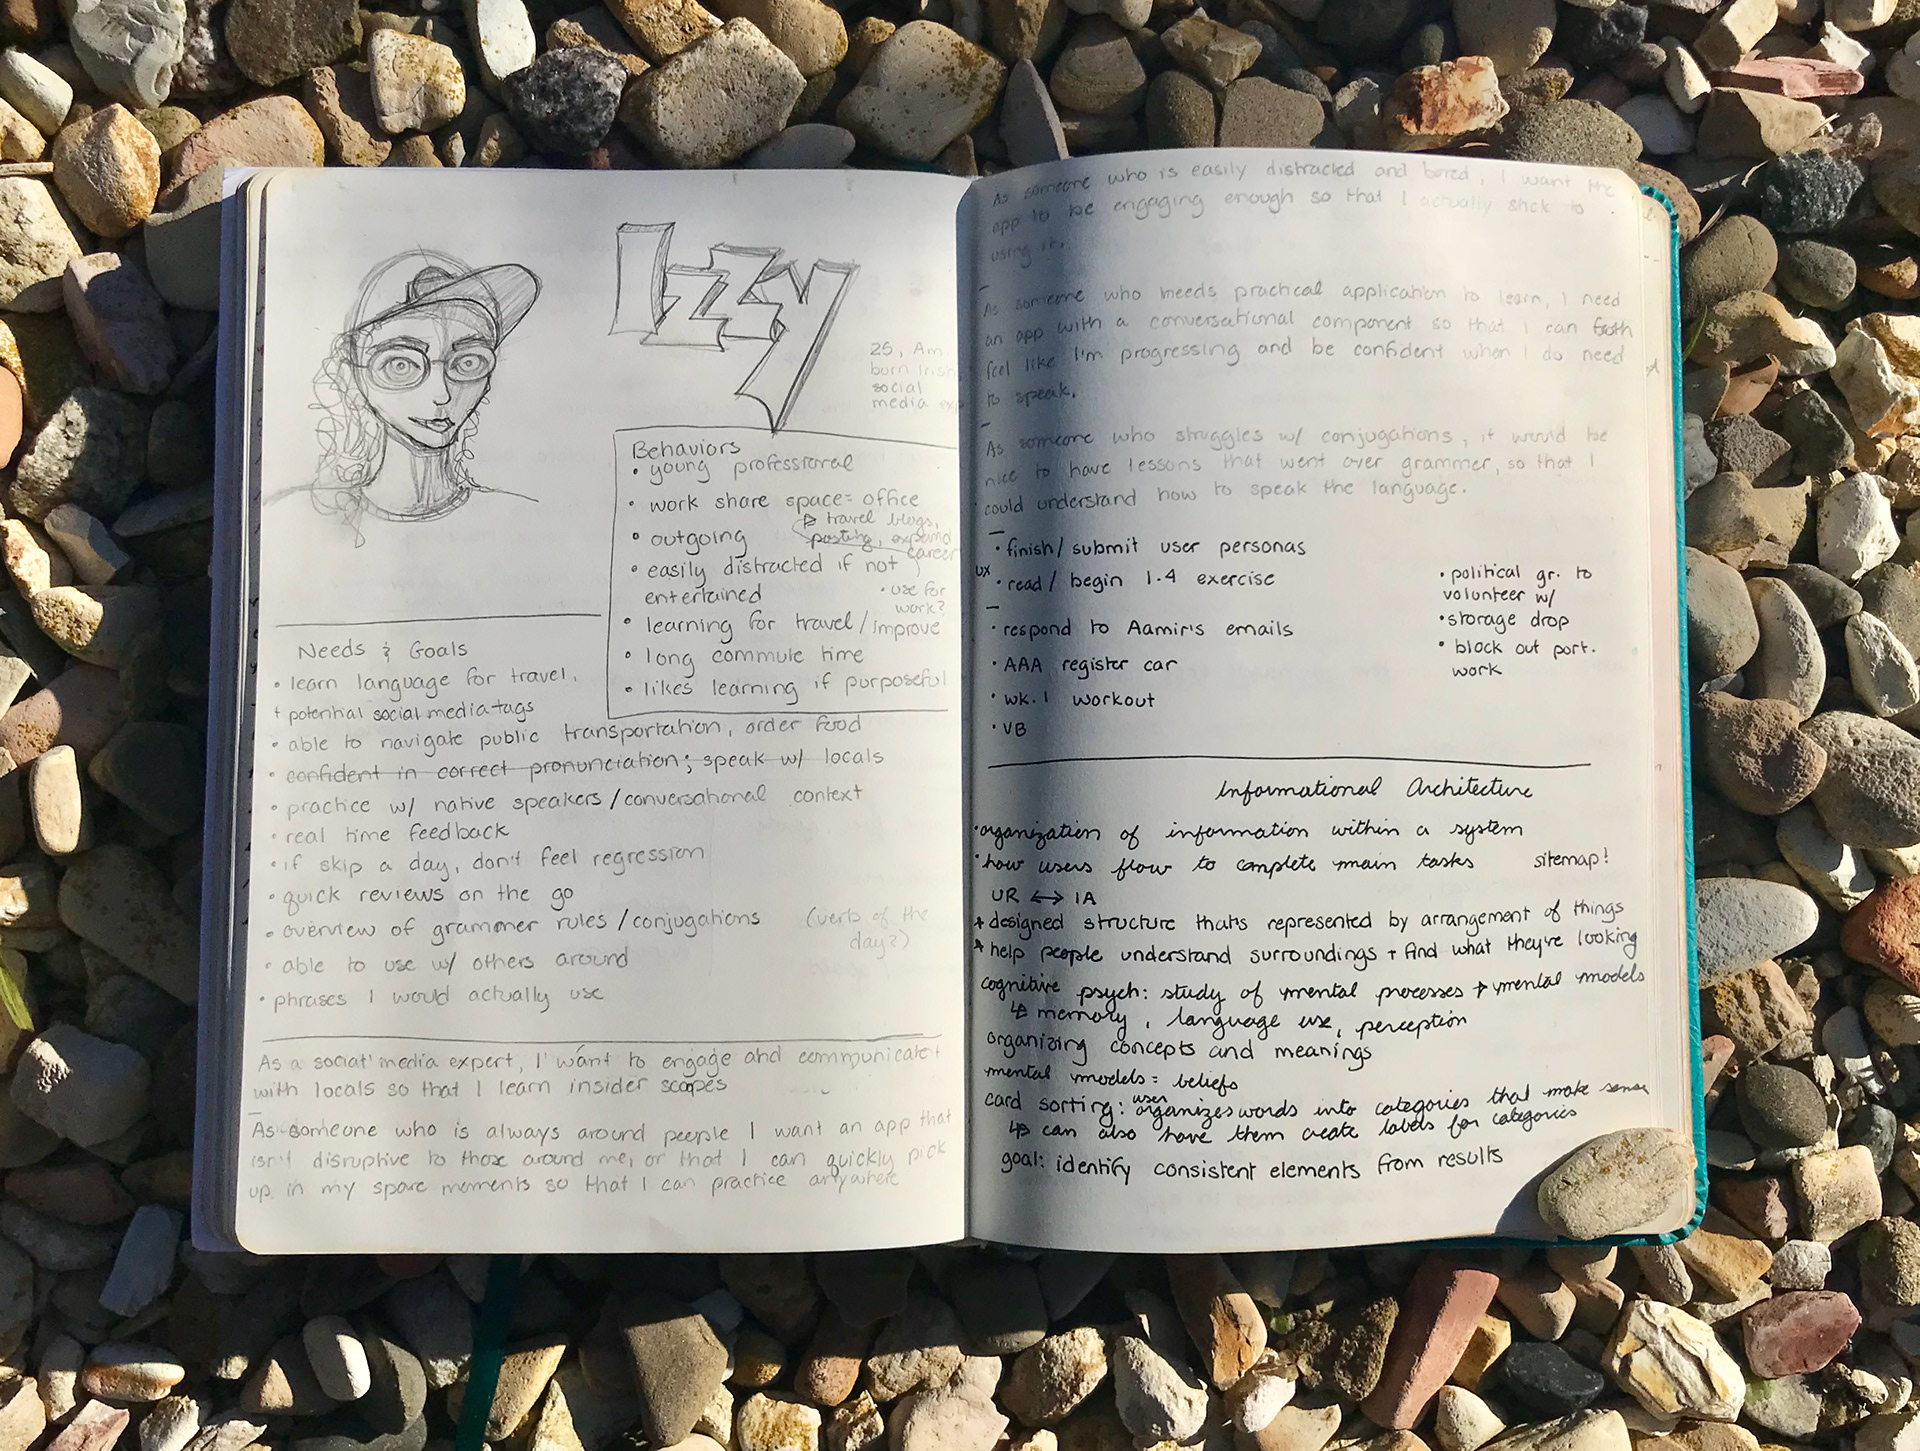 Izzy
25, Am
born Irish
social
media exp
Behaviors
• young professional
• work share space = office
travel blogs,
posting, expand
career
• outgoing
• easily distracted if not
entertained
• use for
work?
• learning for travel / improve
• long commute time
• likes learning if purposeful
Needs & Goals
• learn language for travel,
+ potential social media tags
• able to navigate public transportation, order food
• confident in correct pronunciation; speak w/ locals
• practice w/ native speakers / conversational context
• real time feedback
• if skip a day, don't feel regression
• quick reviews on the go
• overview of grammer rules / conjugations (verbs of the
day?)
• able to use w/ others around
• phrases I would actually use
As a social media expert, I want to engage and communicate
with locals so that I learn insider scopes
As someone who is always around people I want an app that
isn't disruptive to those around me, or that I can quickly pick
up in my spare moments so that I can practice anywhere
As someone who is easily distracted and bored, I want the
app to be engaging enough so that I actually stick to
using it.
As someone who needs practical application to learn, I need
an app with a conversational component so that I can
feel like I'm progressing and be confident when I do need
to speak.
As someone who struggles w/ conjugations, it would be
nice to have lessons that went over grammer, so that I
could understand how to speak the language.
• finish / submit user personas
UX
• read / begin 1.4 exercise
• respond to Aamir's emails
• AAA register car
• wk. 1 workout
• VB
• political gr. to
volunteer w/
• storage drop
• block out port.
work
Informational Architecture
• organization of information within a system
• how users flow to complete main tasks sitemap!
UR ↔ IA
* designed structure thats represented by arrangement of things
* help people understand surroundings + find what they're looking
cognitive psych: study of mental processes → mental models
↳ memory, language use, perception
organizing concepts and meanings
mental models = beliefs
card sorting: user organizes words into categories that make sense
↳ can also have them create labels for categories
goal: identify consistent elements from results